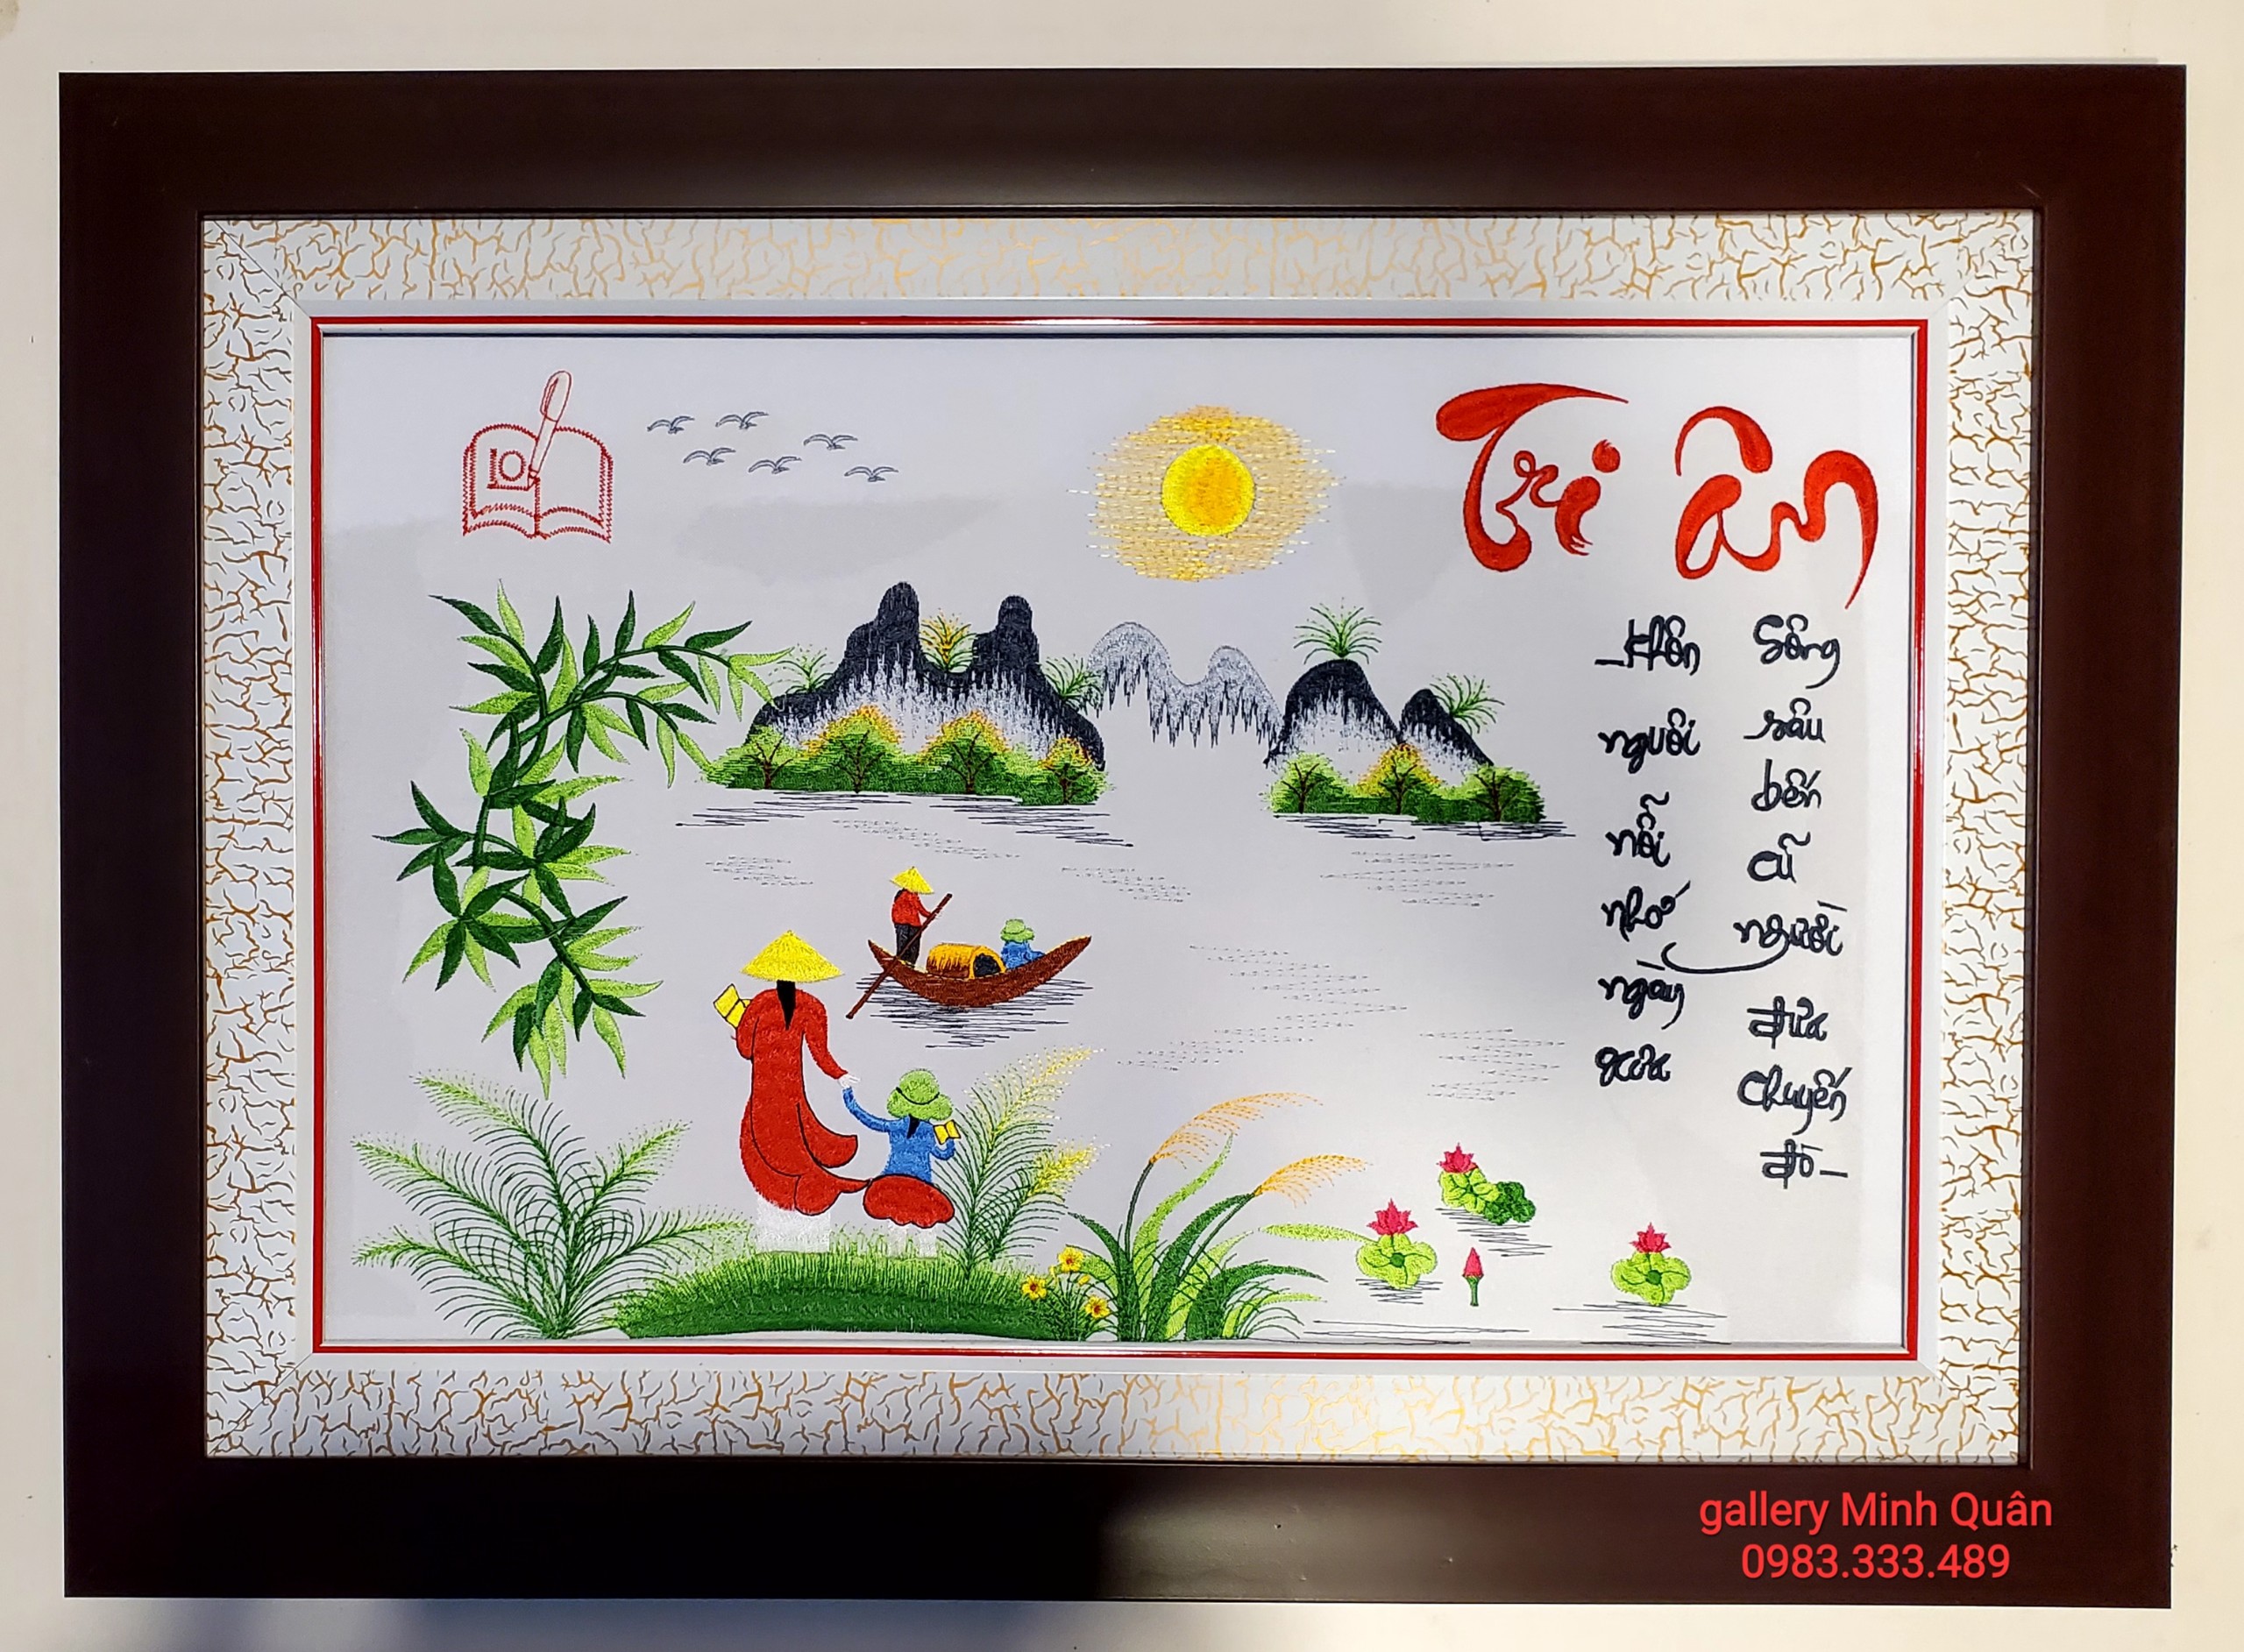 10
Tri ân
– Khôn nguôi nỗi nhớ ngày xưa
Sông sâu bến cũ người đưa chuyến đò –
gallery Minh Quân
0983.333.489